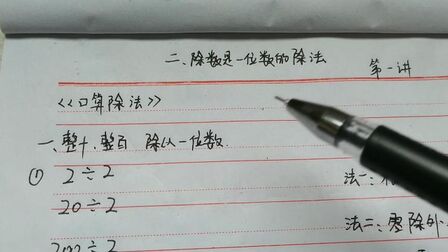 二、除数是一位数的除法
第一讲
<<口算除法>>
一、整十、整百 除以一位数.
① 2÷2
法一:
20÷2
法二:零除外
200÷2